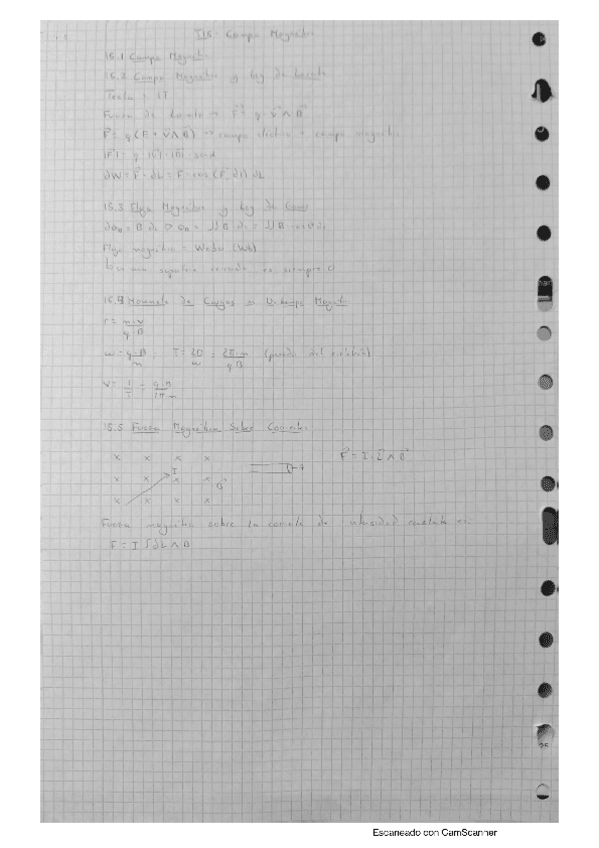 T15 Campo Magnético
15.1 Campo Magnet
15.2 Campo Magnético y Ley de Lorentz
Tesla = 1T
Fuerza de Lorentz → F = q · V ∧ B
F = q (E + V ∧ B) → campo eléctrico + campo magnetic
|F| = q · |V| · |B| · send
dW = F · dL = F · cos (F, dl) dL
15.3 Flujo Magnético y Ley de Gauss
Flujo magnético = Weber (Wb)
superficie cerrada es siempre 0
15.4 Movimiento de Cargas en Un Campo Magnet
r = m·v / q B
ω = q·B / m ; T = 2π / ω = 2π·m / q B
V = 1 / T = q B / 2π m
15.5 Fuerza Magnética Sobre Corrientes
x x x x
F = I · L ∧ B
I
x x x x B
x x x x
Fuerza magnética sobre la corriente de intensidad constante es:
F = I ∫ dL ∧ B
Escaneado con CamScanner